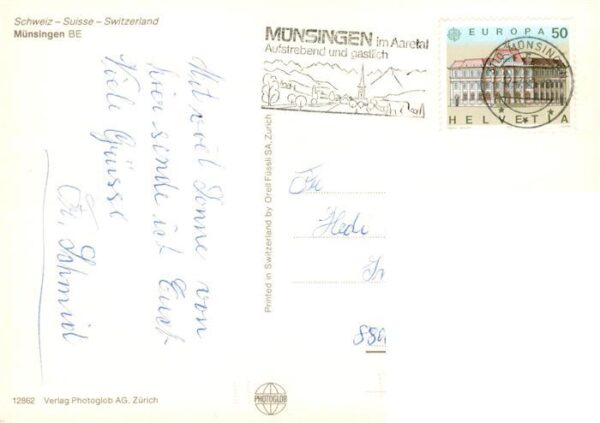 Schweiz – Suisse – Switzerland
Münsingen BE
MÜNSINGEN im Aaretal
Aufstrebend und gastlich
EUROPA 50
HELVETIA
3110 MÜNSINGEN
Mit viel Sonne von
hier sende ich Euch
Viele Grüsse
Fr. Schmid
Printed in Switzerland by Orell Füssli SA, Zürich
Fr
Hedi
12862 Verlag Photoglob AG, Zürich
PHOTOGLOB